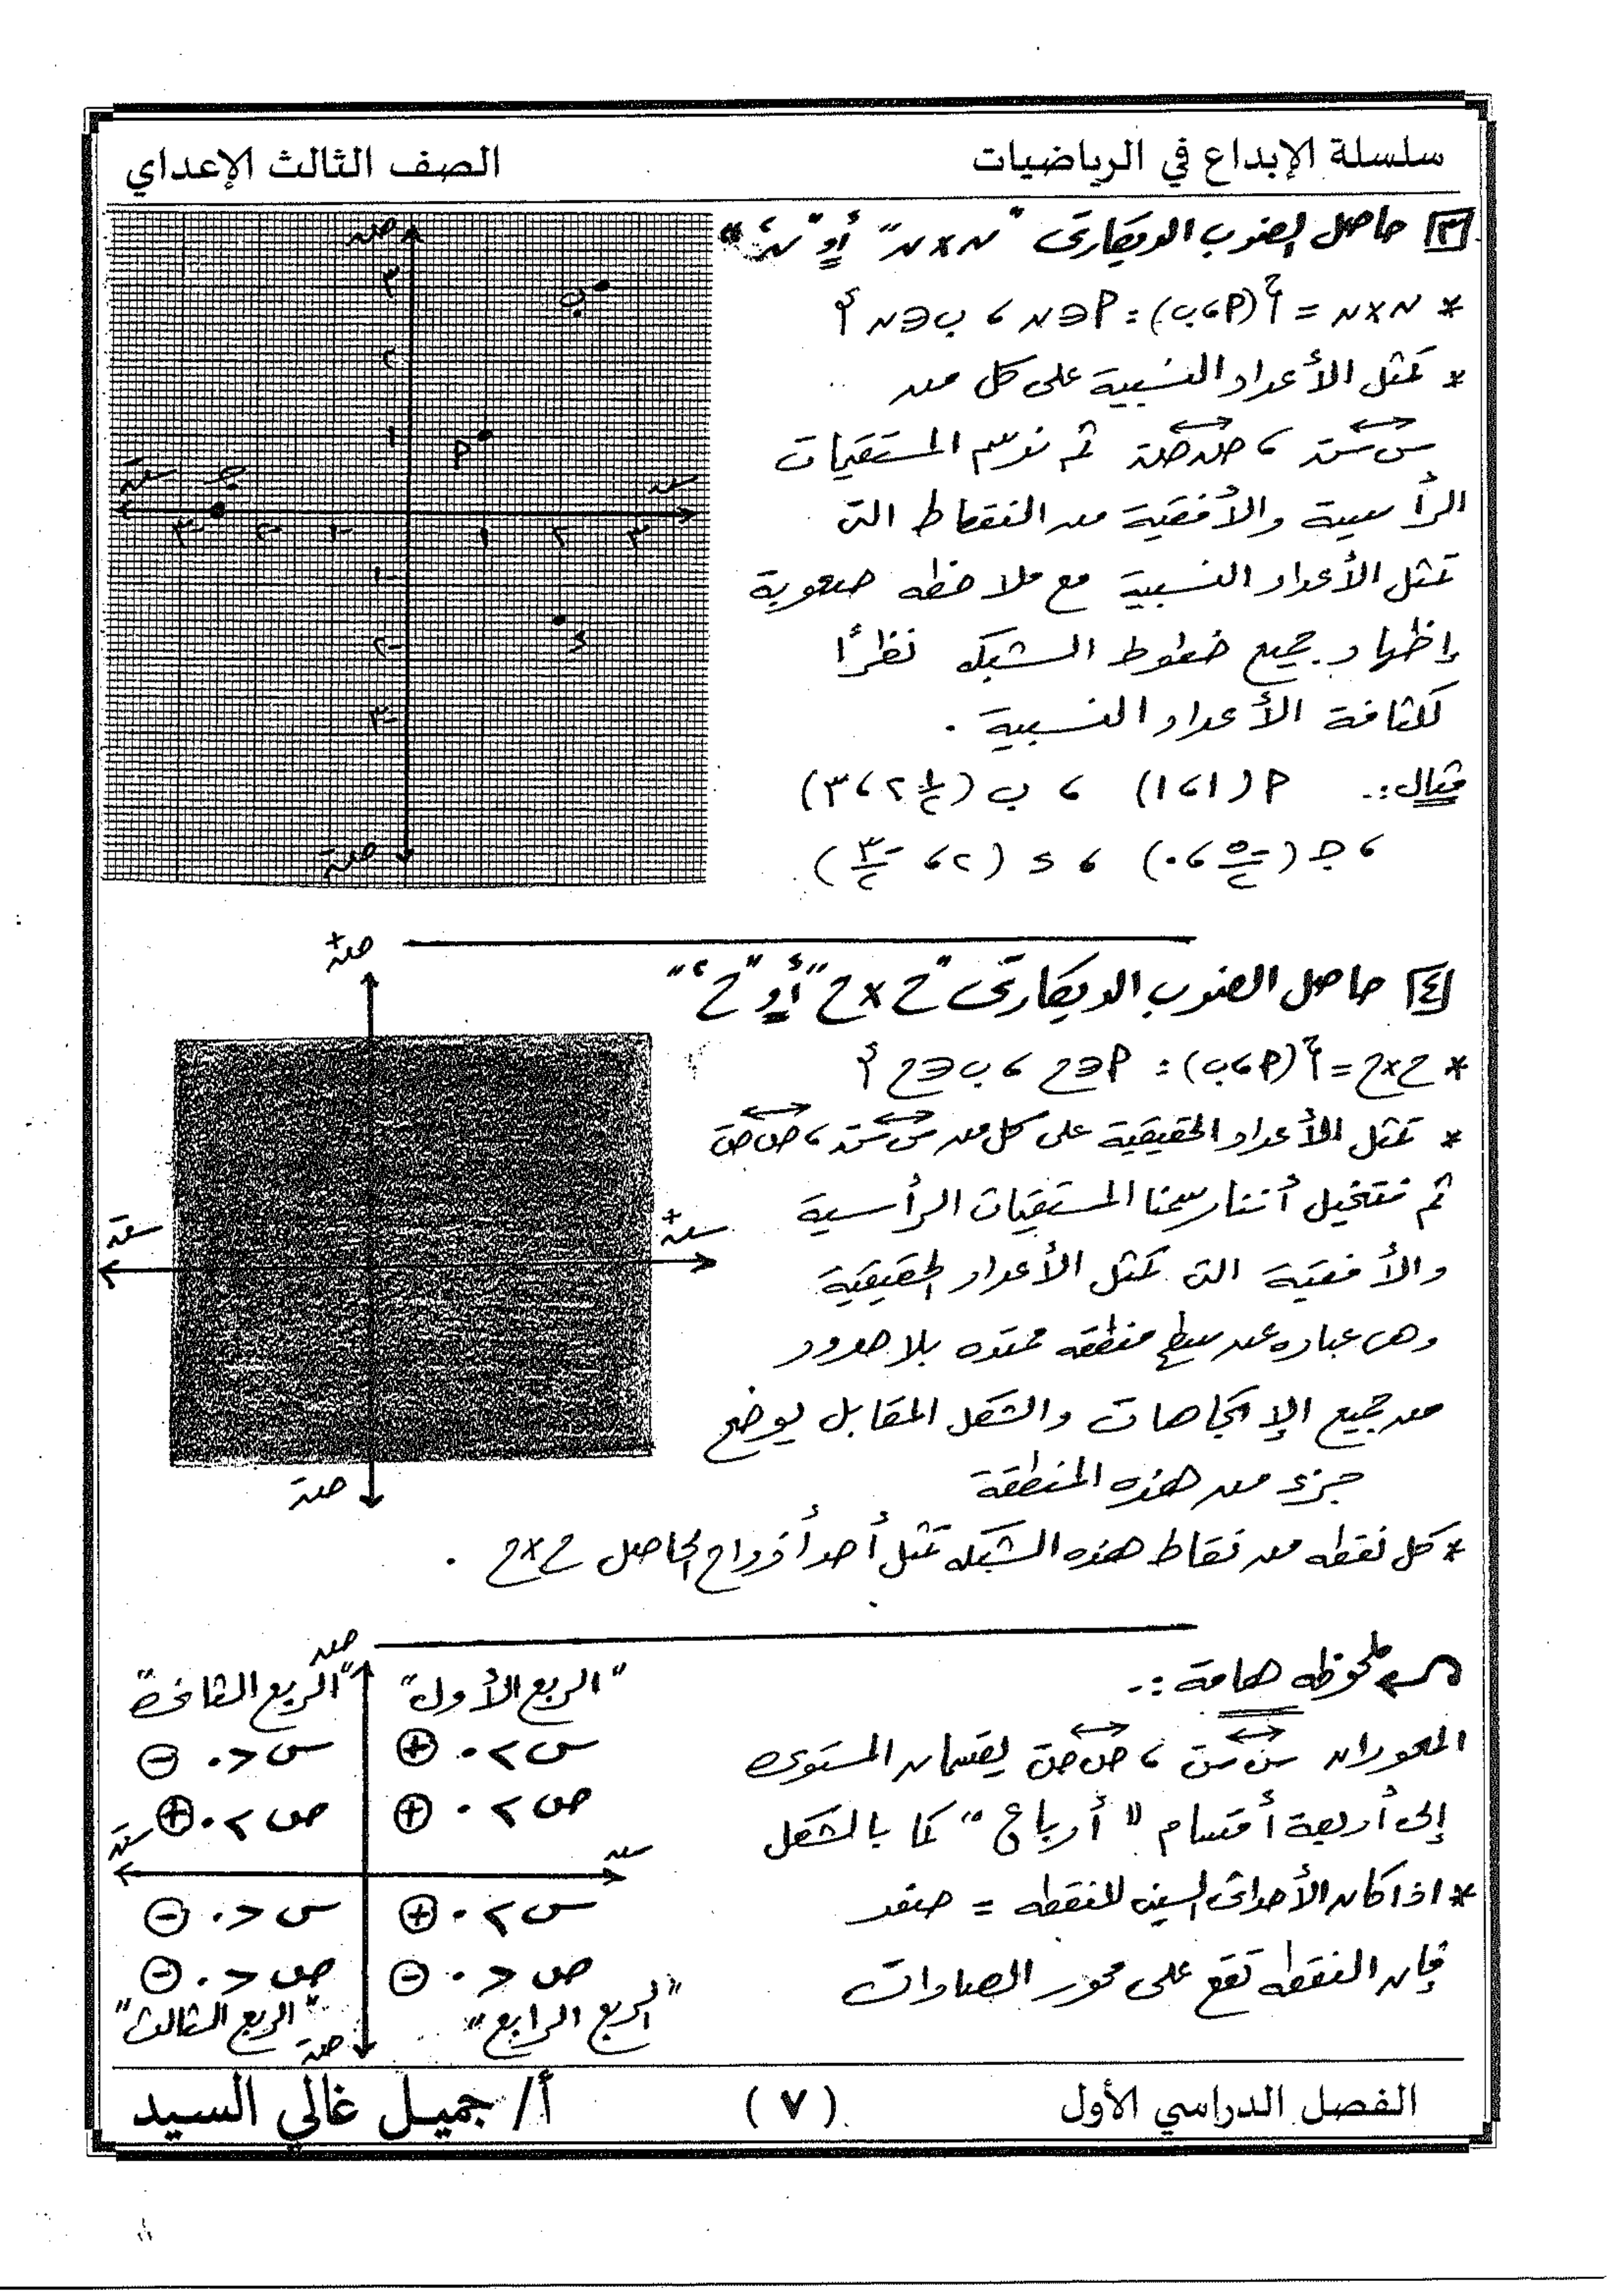 سلسلة الإبداع في الرياضيات
الصف الثالث الإعداي
[٣] حاصل الضرب الديكارتى "ن×ن" أو "ن²"
* ن×ن = {(أ،ب): أ∈ن ، ب∈ن}
* تمثل الأعداد النسبية على كل من
س س ، ص ص ثم نرسم المستقيمات
الرأسية والأفقية من النقاط التى
تمثل الأعداد النسبية مع ملاحظه صعوبة
إظهار جميع خطوط الشبكه نظرًا
لكثافة الأعداد النسبية .
مثال:. أ(١،١) ، ب(٢½،٣)
، جـ(-٥/٢،٠) ، د(٢،-٣/٢)
ص
٣
ب
٢
١
أ
س
جـ
س
-٣ -٢ -١ ١ ٢ ٣
-١
-٢
د
-٣
ص
[٤] حاصل الضرب الديكارتى "ح×ح" أو "ح²"
* ح×ح = {(أ،ب): أ∈ح ، ب∈ح}
* تمثل الأعداد الحقيقية على كل من س س ، ص ص
ثم نتخيل أننا رسمنا المستقيمات الرأسية
والأفقية التى تمثل الأعداد الحقيقية
وهى عباره عن سطح منطقه ممتده بلا حدود
من جميع الإتجاهات والشكل المقابل يوضح
جزء من هذه المنطقة
* كل نقطه من نقاط هذه الشبكه تمثل أحد أزواج الحاصل ح×ح .
ص+
س+
س-
ص-
ملحوظه هامة:.
المحوران س س ، ص ص يقسمان المستوى
إلى أربعة أقسام "أرباع" كما بالشكل
* اذا كان الأحداثى السينى للنقطه = صفر
فإن النقطه تقع على محور الصادات
ص
"الربع الأول"
س > ٠ ⊕
ص > ٠ ⊕
"الربع الثانى"
س < ٠ ⊖
ص > ٠ ⊕
س
س
س > ٠ ⊕
ص < ٠ ⊖
"الربع الرابع"
س < ٠ ⊖
ص < ٠ ⊖
"الربع الثالث"
ص
الفصل الدراسي الأول
(٧)
أ/ جميل غالي السيد